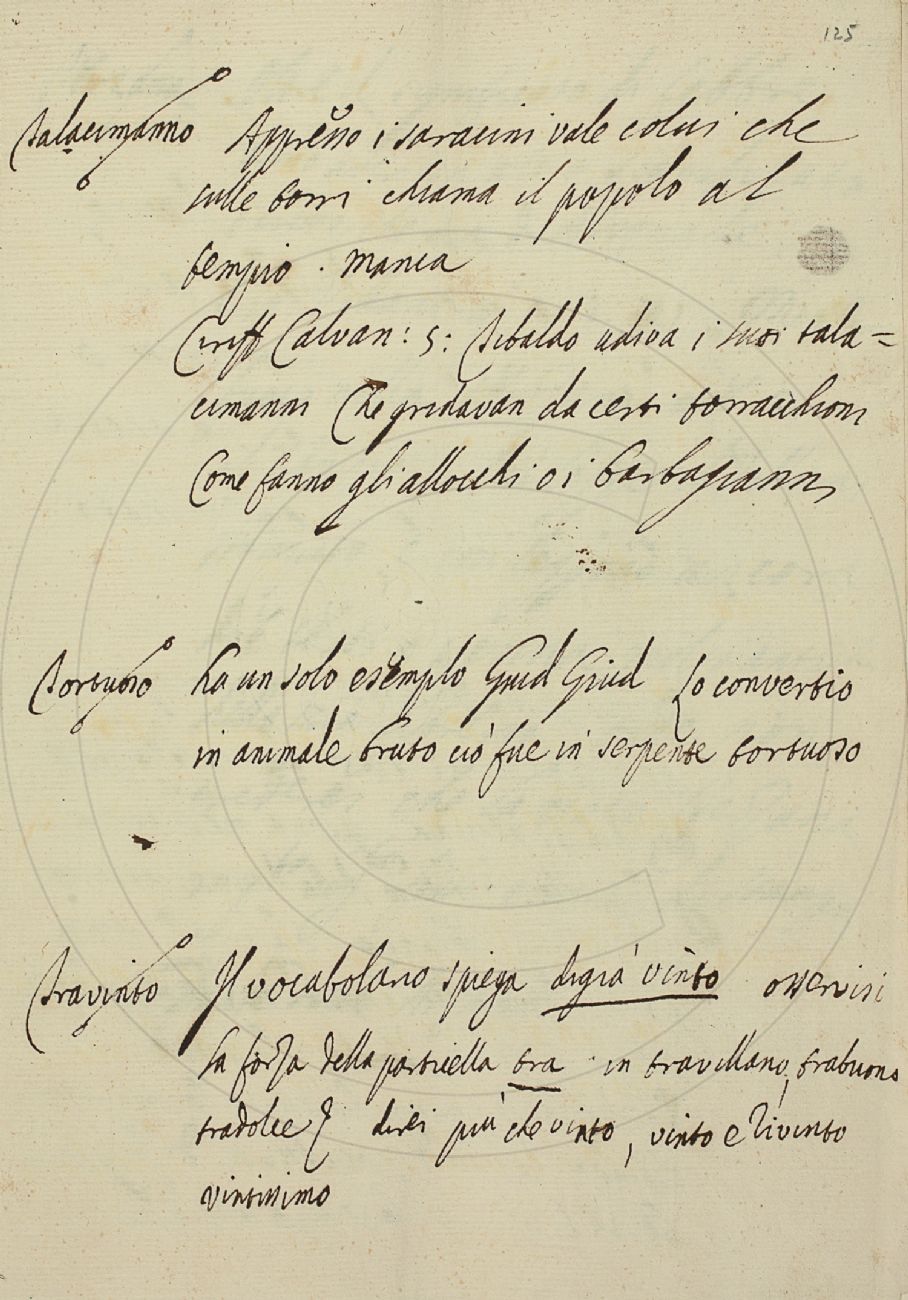 125
Talacimanno Appresso i saracini vale colui che
sulle torri chiama il popolo al
tempio . manca
Ciriff Calvan: 5: Tibaldo udiva i suoi tala=
cimanni Che gridavan da certi torracchioni
Come fanno gli allocchi o i barbagianni
Tortuoso ha un solo esemplo Guid Giud Lo convertio
in animale bruto ciò fue in serpente tortuoso
Travinto Il vocabolario spiega digià vinto osservisi
la forza della particella tra . in travillano, trabuono
tradolce direi più che vinto, vinto e rivinto
vintissimo